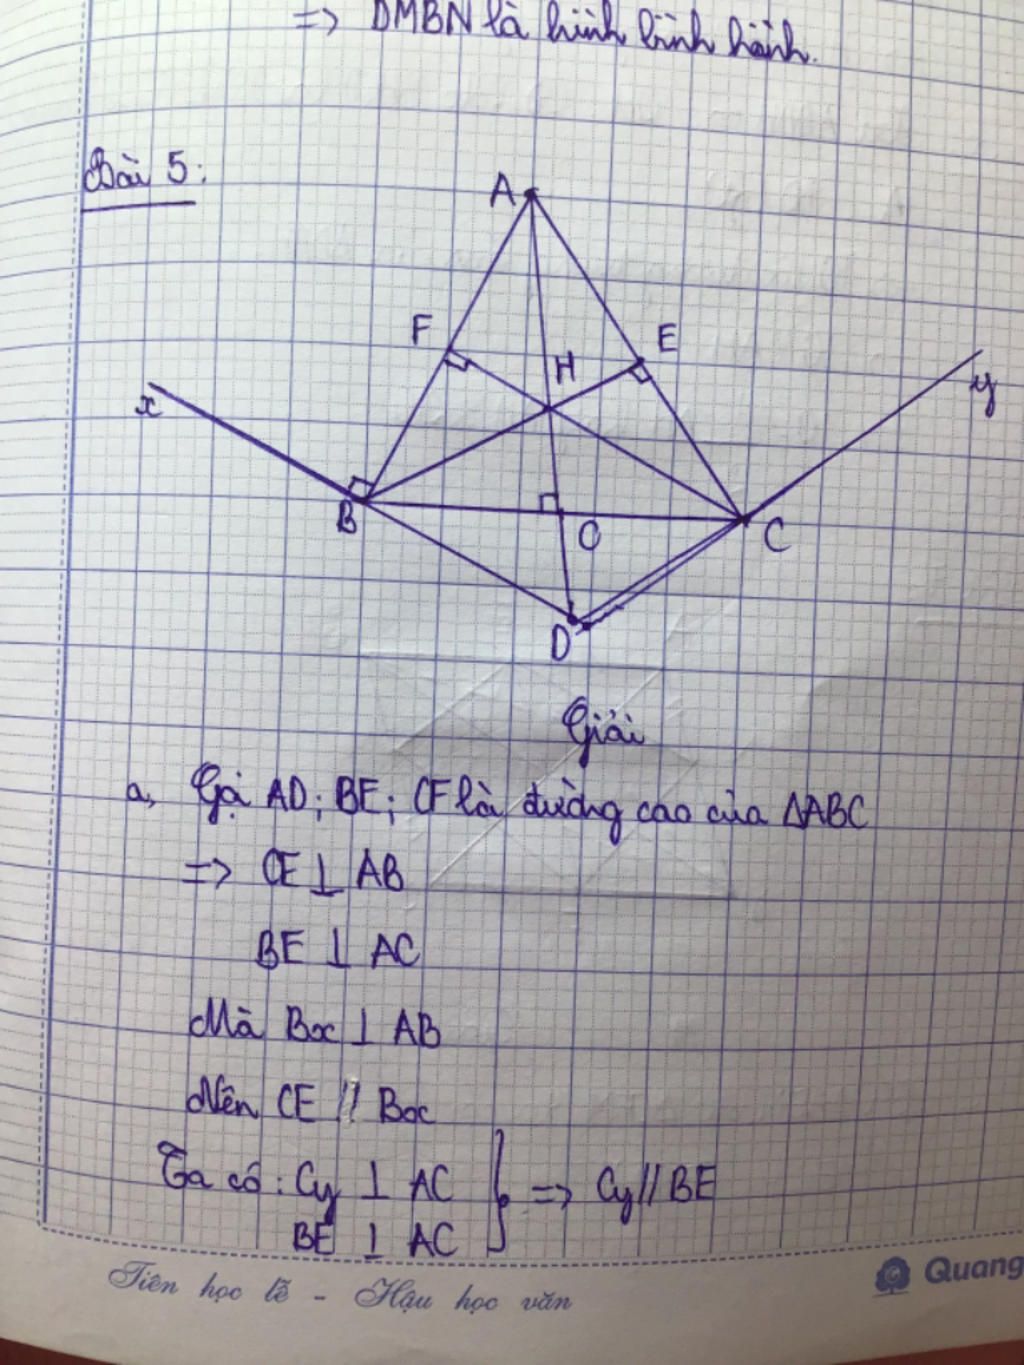 => DMBN là hình bình hành.
Bài 5:
A
F
E
H
x
y
B
O
C
D
Giải
a, Gọi AD; BE; CF là đường cao của ΔABC
=> CE ⊥ AB
BE ⊥ AC
Mà Bx ⊥ AB
Nên CE // Bx
Ta có: Cy ⊥ AC
BE ⊥ AC
} => Cy // BE
Tiên học lễ - Hậu học văn
Quang